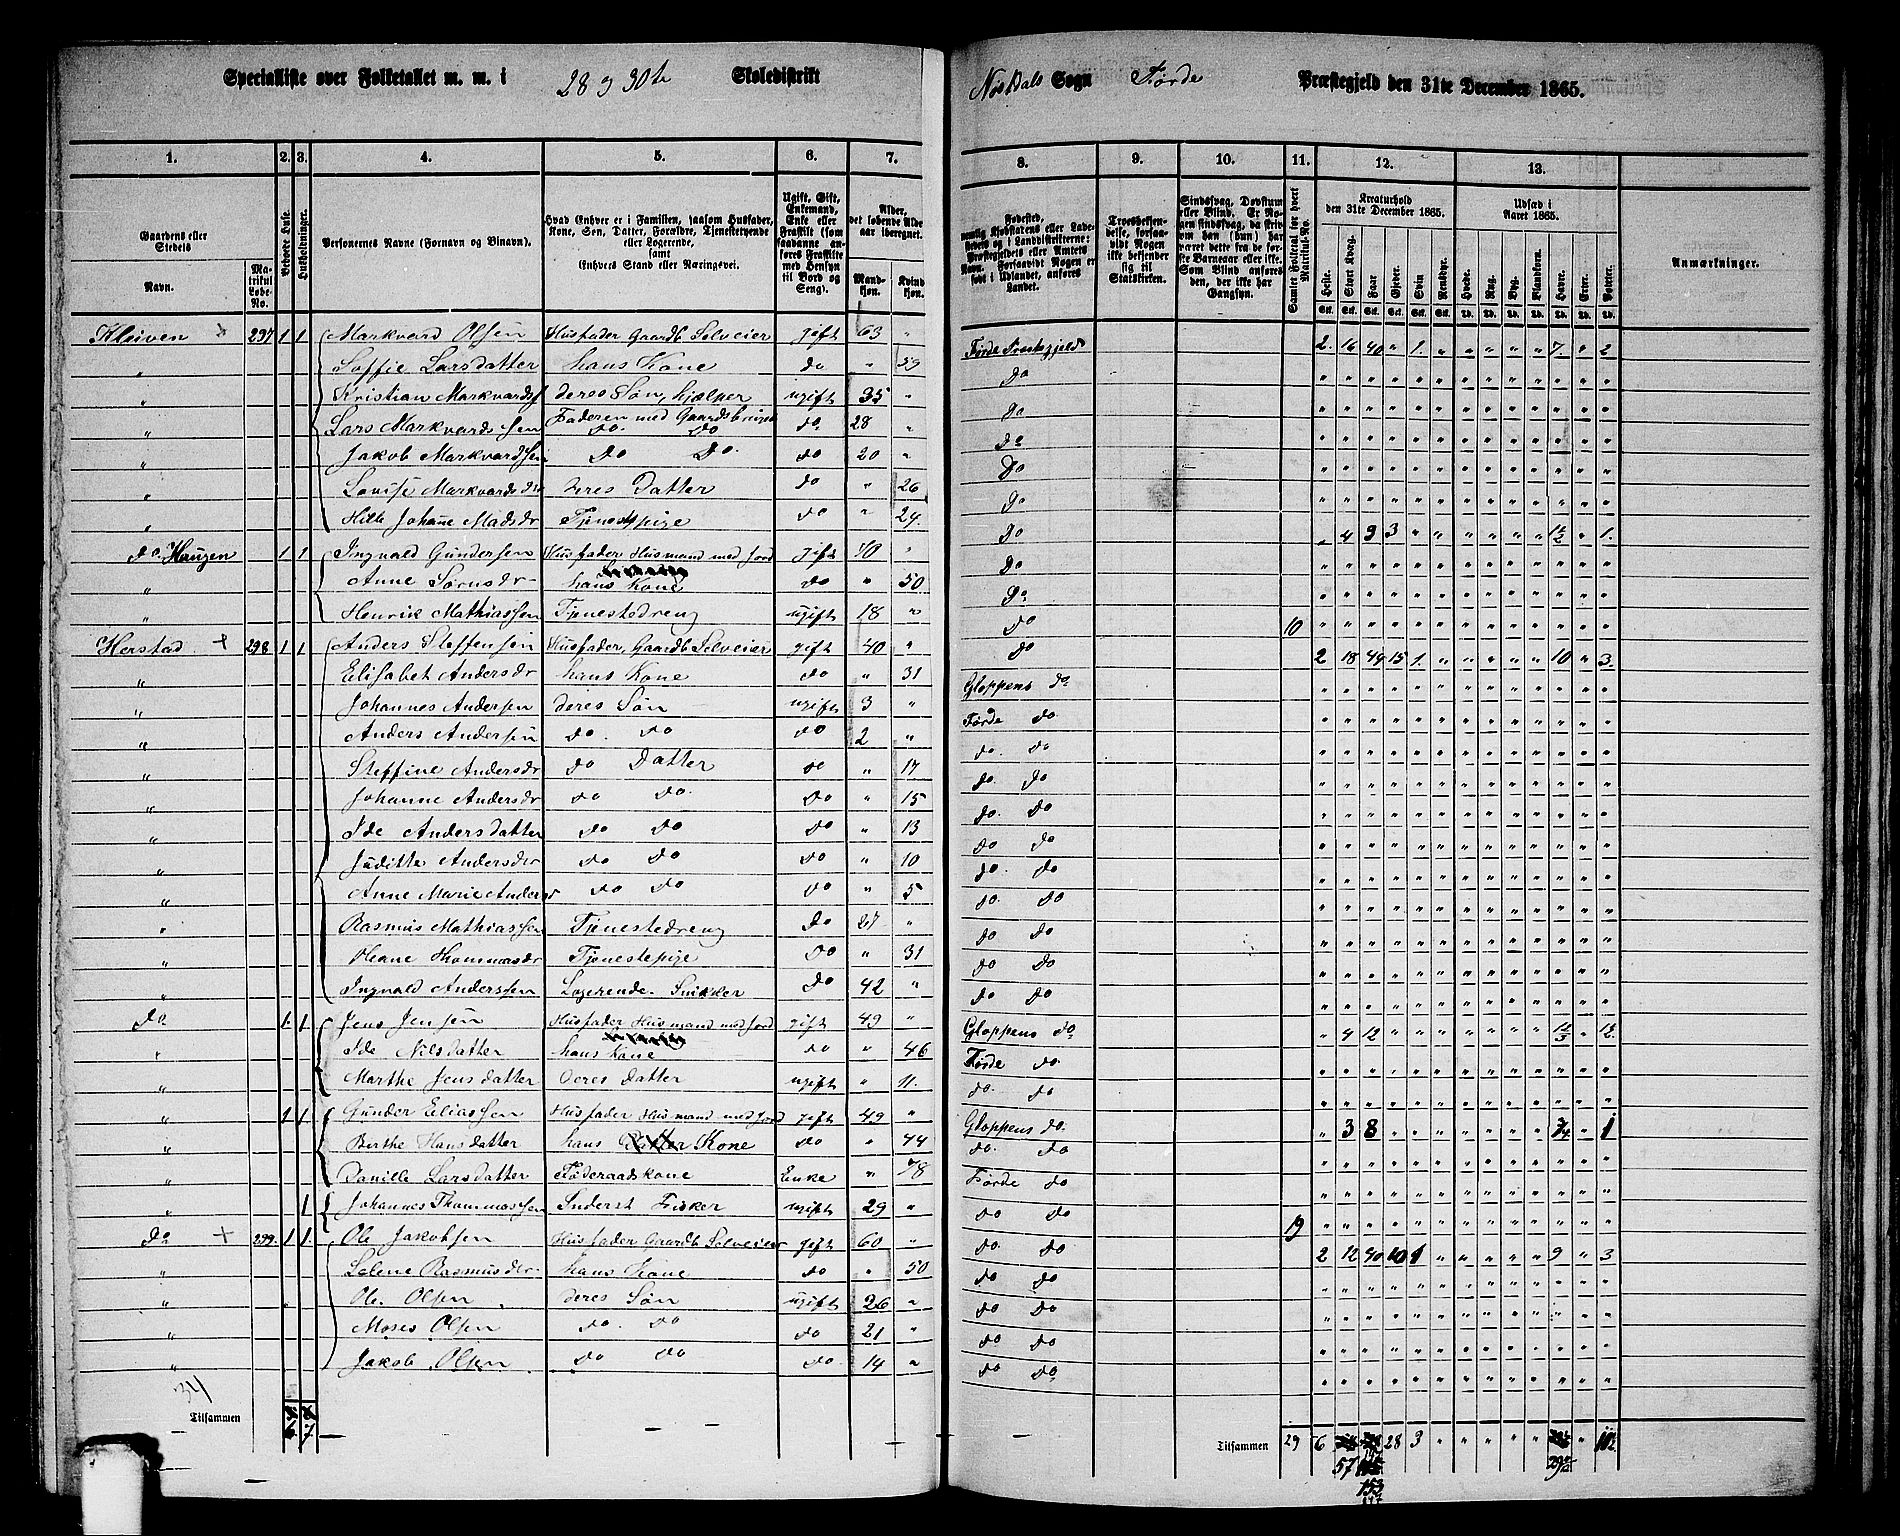 Specialliste over Folketallet m. m. i 28 g 30te Skoledistrikt
Sogn Førde Præstegjeld den 31te December 1865.
1. 2. 3. 4. 5. 6. 7.
8. 9. 10. 11. 12. 13.
Gaardens eller Stedets
Navn.
Matrikul Løbe-No.
Beboede Huse.
Husholdninger.
Personernes Navne (Fornavn og Binavn).
Hvad Enhver er i Familien, saasom Husfader, Kone, Søn, Datter, Forældre, Tjenestetyende eller Logerende, samt Enhvers Stand eller Næringsvei.
Ugift, Gift, Enkemand, Enke eller Fraskilt (som saadanne anføres Fraskilte med Hensyn til Bord og Seng).
Alder, det løbende Alders Aar iberegnet.
Mandkjøn. Kvindkjøn.
Troesbekjendelse, forsaavidt Nogen ikke bekjender sig til Statskirken.
Samlet Folketal for hvert Matrikul-No.
Kreaturhold den 31te December 1865.
Udsæd i Aaret 1865.
Heste. Stort Kvæg. Faar. Gjeder. Svin. Rensdyr. Hvede. Rug. Byg. Blandkorn. Havre. Erter. Poteter.
Anmærkninger.
Kleiven 297 1 1 Markvard Olsen Husfader Gaardb Selveier gift 63 " Førde Præstegjeld 2 16 40 " 1 " " " " " 7 " 2
" Soffie Larsdatter hans Kone do " 59 do
" Kristian Markvards deres Søn, hjelper ugift 35 " do
" Lars Markvardssen Faderen med Gaardsbrugen do do do 28 " do
" Jakob Markvardsen do do do 20 " do
" Lovise Markvardsdr deres Datter do " 26 do
" Hille Johanne Madsdr Tjenestpige do " 24 do
do Haugen 1 1 Ingvald Gundersen Husfader Husmand med Jord gift 40 " do
" Anne Sørnsdr hans Kone do " 50 do
" Henrik Mathiassen Tjenestedreng ugift 18 " do 10
Herstad 298 1 1 Anders Steffensen Husfader, Gaardb Selveier gift 40 " do 2 18 49 15 1 " " " " " 10 " 3
" Elisabet Andersdr hans Kone do " 31 Gloppens do
" Johannes Andersen deres Søn ugift 3 " Førde do
" Anders Andersen do do do 2 " do do
" Steffine Andersdr do Datter do " 17 do do
" Johanne Andersdr do do do " 15 do do
" Ide Andersdatter do do do " 13 do do
" Juditte Andersdr do do do " 10 do do
" Anne Marie Andersdr do do do " 5 do do
" Rasmus Mathiassen Tjenestedreng do 27 " do do
" Thommasdr Tjenestepige do " 31 do do
" Ingvald Anderssen Logerende Snikker do 42 " do do
do 1 1 Jens Jensen Husfader Husmand med Jord gift 49 " Gloppens do " 4 12
" Ide Nilsdatter hans Kone do " 46 Førde do
" Marthe Jensdatter deres Datter ugift " 11 do do
" 1 1 Gunder Eliassen Husfader Husmand med Jord gift 49 " Gloppens do " 3 8 " " " " " " " 3/4 " 1
" Birthe Hansdatter hans Kone do " 44 do do
" Larsdatter Føderaadskone Enke " 78 Førde do
" 1 Johannes Thommassen Inderst Fisker ugift 29 " do do 19
do 299 1 1 Ole Jakobsen Husfader Gaardb Selveier gift 60 " do do 2 12 40 10 1 " " " " " 9 " 3
" Selene Rasmusdr hans Kone do " 50 do do
" Ole Olsen deres Søn ugift 26 " do do
" Moses Olsen do do do 21 " do do
" Jakob Olsen do do do 14 " do do
34
Tilsammen 6 7
Tilsammen 29 6 28 3
57
153